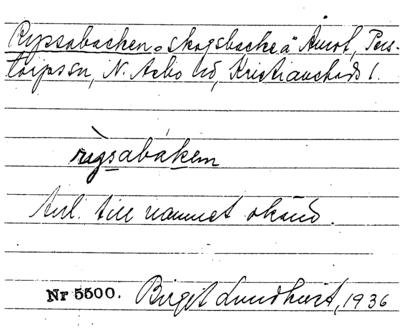 Rypsabacken „skogsbacke å" Åmot, Pers-
torps sn, N. Åsbo hd, Kristianstads l.
rỳgsabákən
Anl. till namnet okänd.
Nr 5500. Birgit Lundkvist, 1936